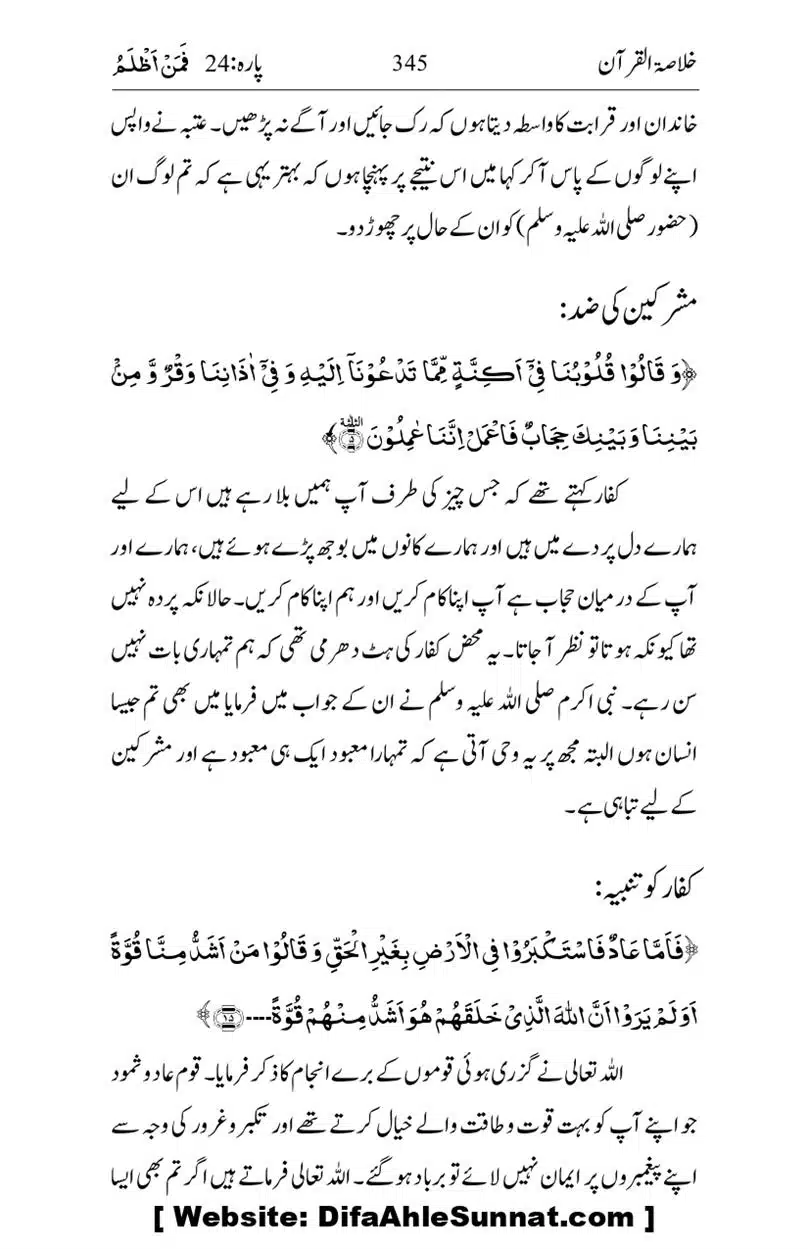 خلاصۃ القرآن 345 پارہ:24 فَمَنْ اَظْلَمُ
خاندان اور قرابت کا واسطہ دیتا ہوں کہ رک جائیں اور آگے نہ پڑھیں۔ عتبہ نے واپس
اپنے لوگوں کے پاس آکر کہا میں اس نتیجے پر پہنچا ہوں کہ بہتر یہی ہے کہ تم لوگ ان
(حضور صلی اللہ علیہ وسلم) کو ان کے حال پر چھوڑ دو۔
مشرکین کی ضد:
﴿وَ قَالُوْا قُلُوْبُنَا فِیْۤ اَکِنَّۃٍ مِّمَّا تَدْعُوْنَاۤ اِلَیْہِ وَ فِیْۤ اٰذَانِنَا وَقْرٌ وَّ مِنْۢ
بَیْنِنَا وَ بَیْنِکَ حِجَابٌ فَاعْمَلْ اِنَّنَا عٰمِلُوْنَ ﴿۵﴾﴾
کفار کہتے تھے کہ جس چیز کی طرف آپ ہمیں بلا رہے ہیں اس کے لیے
ہمارے دل پردے میں ہیں اور ہمارے کانوں میں بوجھ پڑے ہوئے ہیں، ہمارے اور
آپ کے درمیان حجاب ہے آپ اپنا کام کریں اور ہم اپنا کام کریں۔ حالانکہ پردہ نہیں
تھا کیونکہ ہوتا تو نظر آ جاتا۔ یہ محض کفار کی ہٹ دھرمی تھی کہ ہم تمہاری بات نہیں
سن رہے۔ نبی اکرم صلی اللہ علیہ وسلم نے ان کے جواب میں فرمایا میں بھی تم جیسا
انسان ہوں البتہ مجھ پر یہ وحی آتی ہے کہ تمہارا معبود ایک ہی معبود ہے اور مشرکین
کے لیے تباہی ہے۔
کفار کو تنبیہ:
﴿فَاَمَّا عَادٌ فَاسْتَکْبَرُوْا فِی الْاَرْضِ بِغَیْرِ الْحَقِّ وَ قَالُوْا مَنْ اَشَدُّ مِنَّا قُوَّۃً
اَوَ لَمْ یَرَوْا اَنَّ اللہَ الَّذِیْ خَلَقَہُمْ ہُوَ اَشَدُّ مِنْہُمْ قُوَّۃً---- ﴿۱۵﴾﴾
اللہ تعالی نے گزری ہوئی قوموں کے برے انجام کا ذکر فرمایا۔ قوم عاد و ثمود
جو اپنے آپ کو بہت قوت و طاقت والے خیال کرتے تھے اور تکبر و غرور کی وجہ سے
اپنے پیغمبروں پر ایمان نہیں لائے تو برباد ہو گئے۔ اللہ تعالی فرماتے ہیں اگر تم بھی ایسا
[ Website: DifaAhleSunnat.com ]